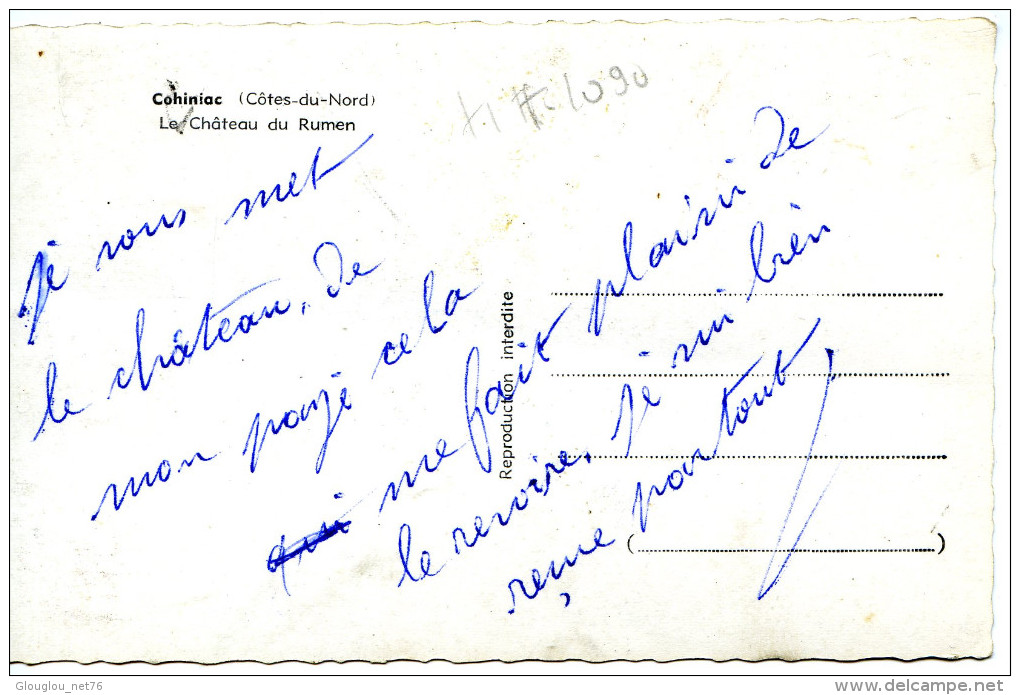 Cohiniac (Côtes-du-Nord)
Le Château du Rumen
1090
je vous met
le château, de
mon payé cela
me fait plaisir de
le revoire, je sui bien
reçue partout,
Reproduction interdite
( )
Glouglou_net76
© delcampe.net